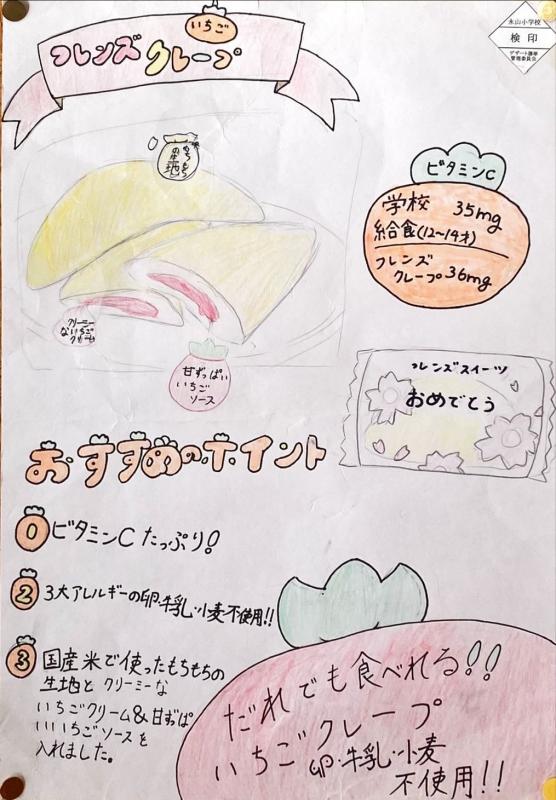 いちご
フレンズクレープ
永山小学校
検印
デザート選挙
管理委員会
もちもち
の生地
クリーミー
ないちご
クリーム
甘ずっぱい
いちご
ソース
ビタミンC
学校 35mg
給食(12〜14才)
フレンズ
クレープ 36mg
フレンズスイーツ
おめでとう
おすすめのポイント
1 ビタミンCたっぷり!
2 3大アレルギーの卵・牛乳・小麦不使用!!
3 国産米で使ったもちもちの
生地とクリーミーな
いちごクリーム&甘ずっぱ
いいちごソースを
入れました。
だれでも食べれる!!
いちごクレープ
卵・牛乳・小麦
不使用!!